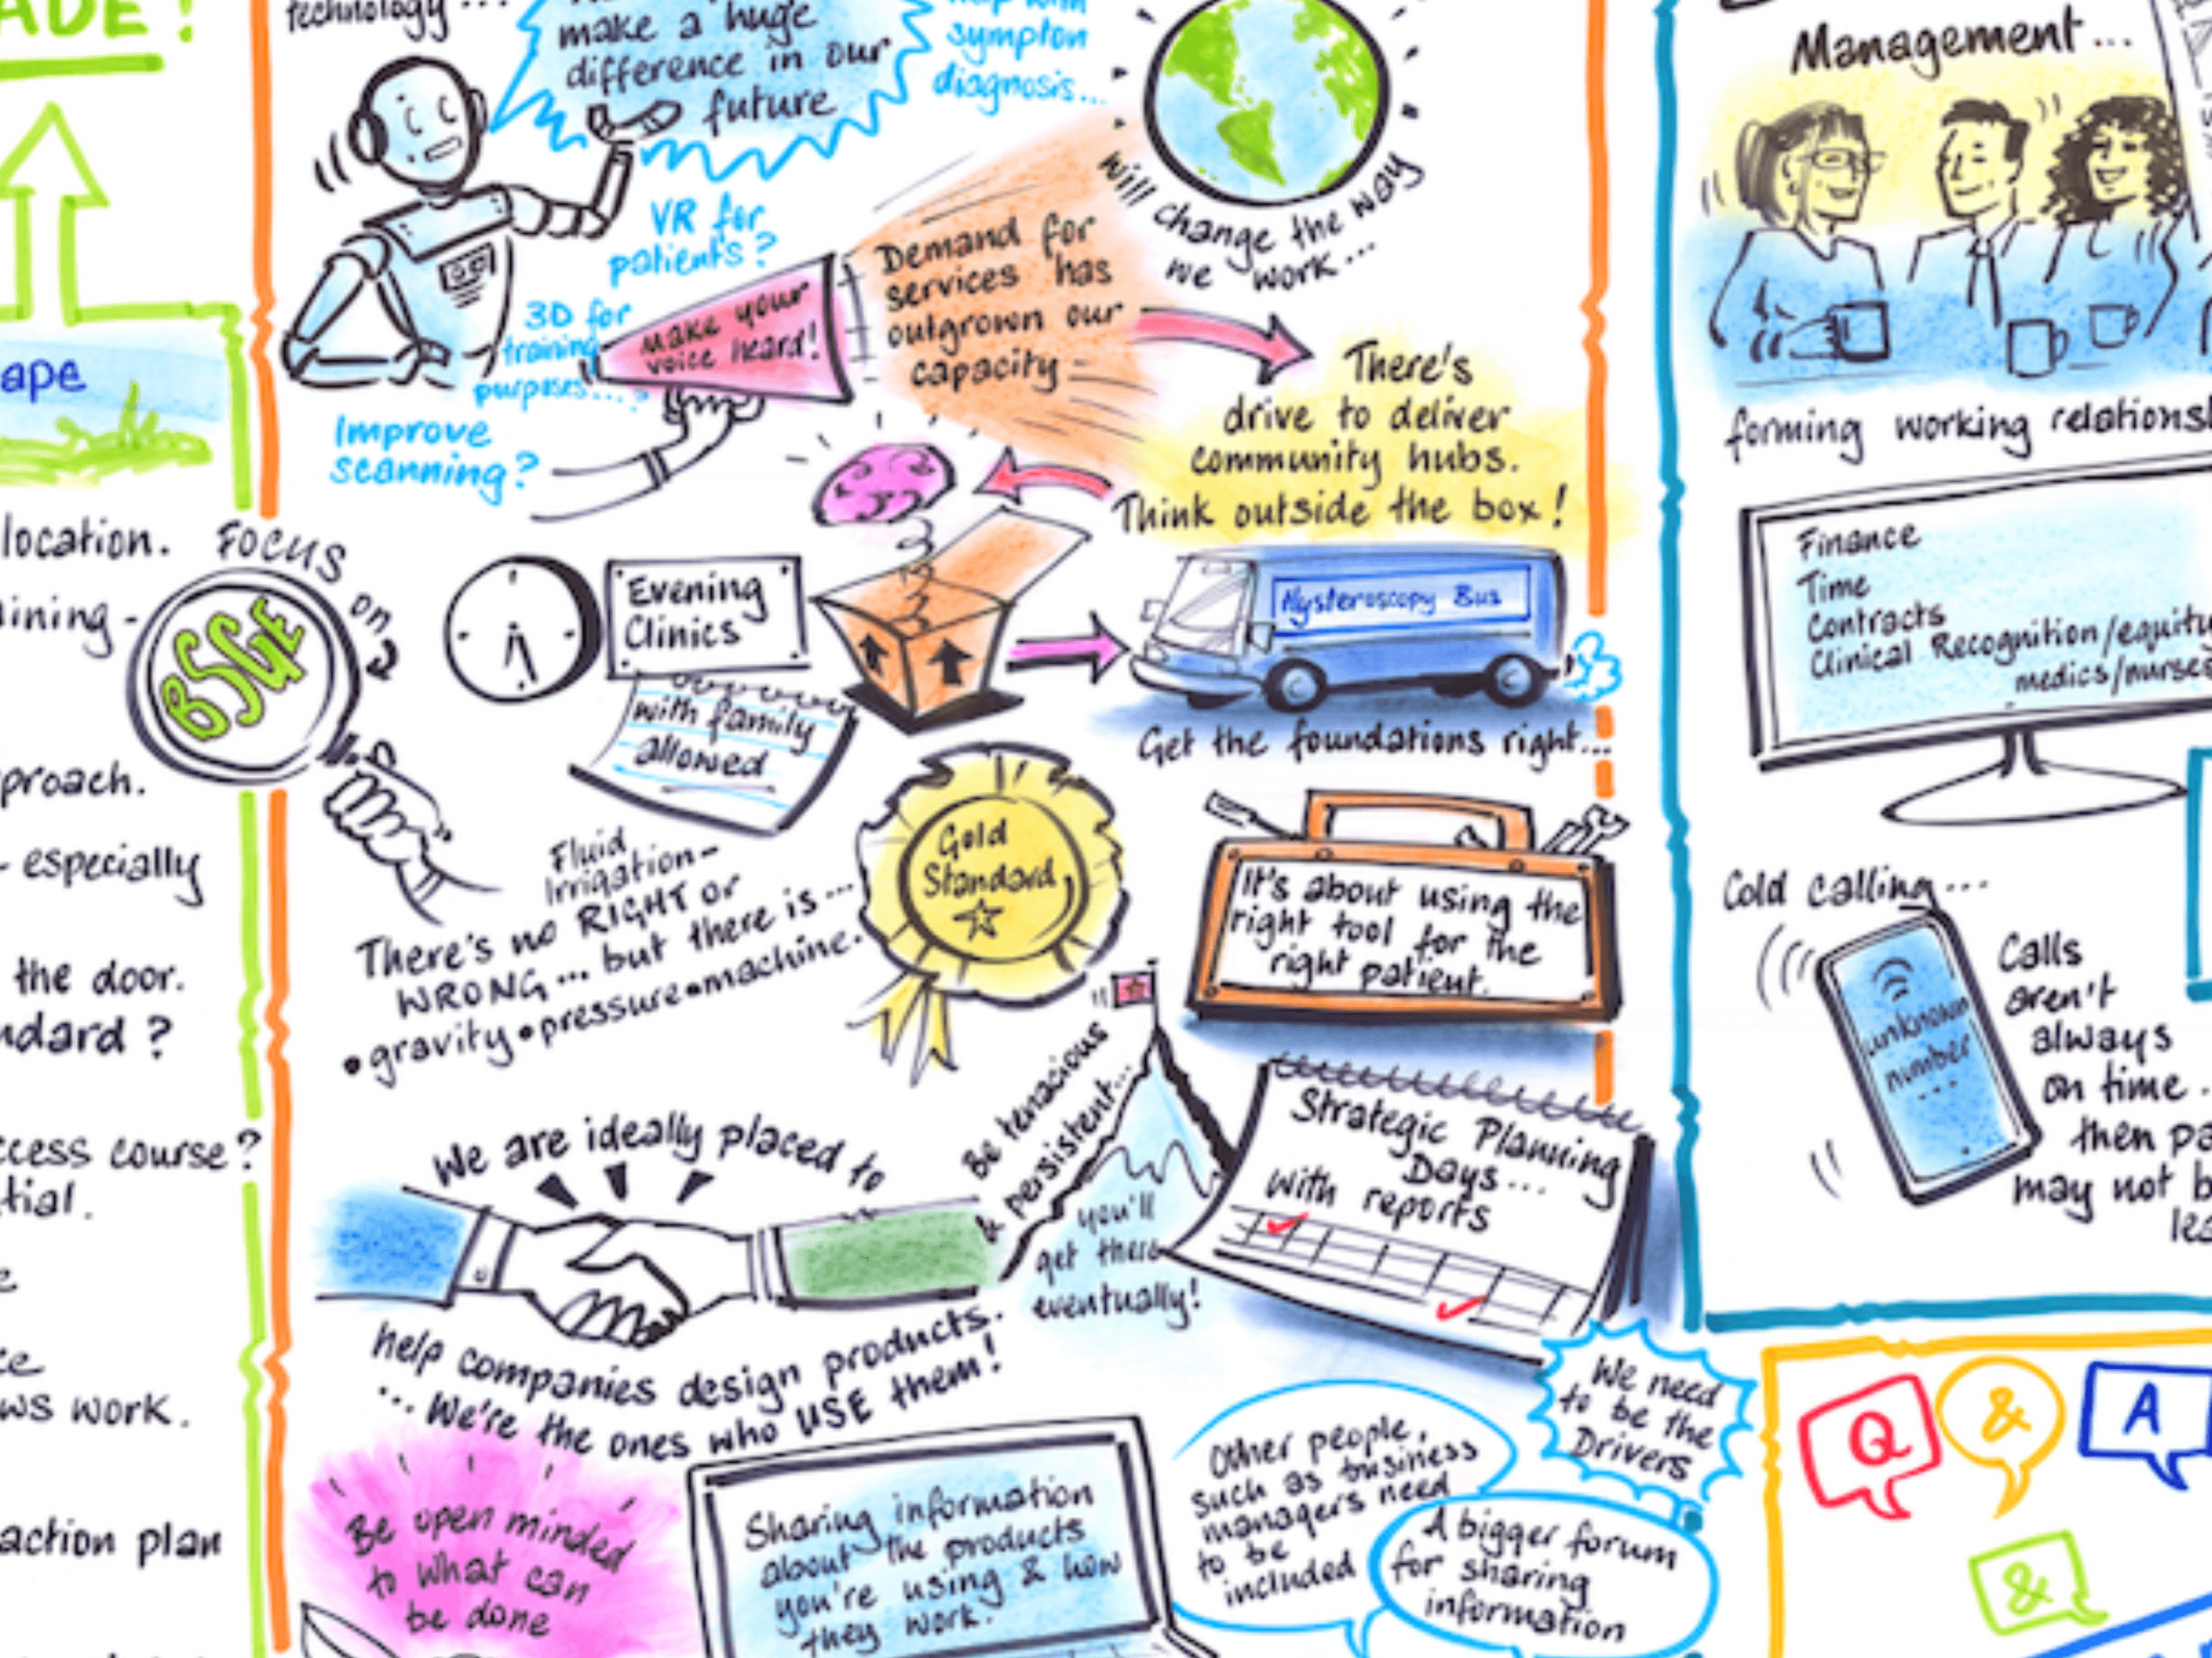 ADE!
ape
location.
ining-
proach.
- especially
the door.
ndard ?
ccess course?
tial.
ws work.
action plan
technology...
make a huge
difference in our
future
help with
sympton
diagnosis...
VR for
patients?
3D for
training
purposes....?
Improve
scanning?
Make your
voice heard!
Demand for
services has
outgrown our
capacity -
will change the way
we work...
There's
drive to deliver
community hubs.
Think outside the box!
Focus
on
BSGE
Evening
Clinics
with family
allowed
Hysteroscopy Bus
Get the foundations right...
Fluid
Irrigation-
There's no RIGHT or
WRONG... but there is...
•gravity•pressure•machine.
Gold
Standard
It's about using the
right tool for the
right patient.
Be tenacious
& persistent...
you'll
get there
eventually!
Strategic Planning
Days...
with reports
We are ideally placed to
help companies design products.
... We're the ones who USE them!
Be open minded
to what can
be done
Sharing information
about the products
you're using & how
they work.
Other people,
such as business
managers need
to be
included
We need
to be the
Drivers
A bigger forum
for sharing
information
Management...
forming working relations
Finance
Time
Contracts
Clinical Recognition/equity
medics/nurses
Cold calling...
unknown
number
...
Calls
aren't
always
on time.
then pa
may not b
lea
Q
&
A
&